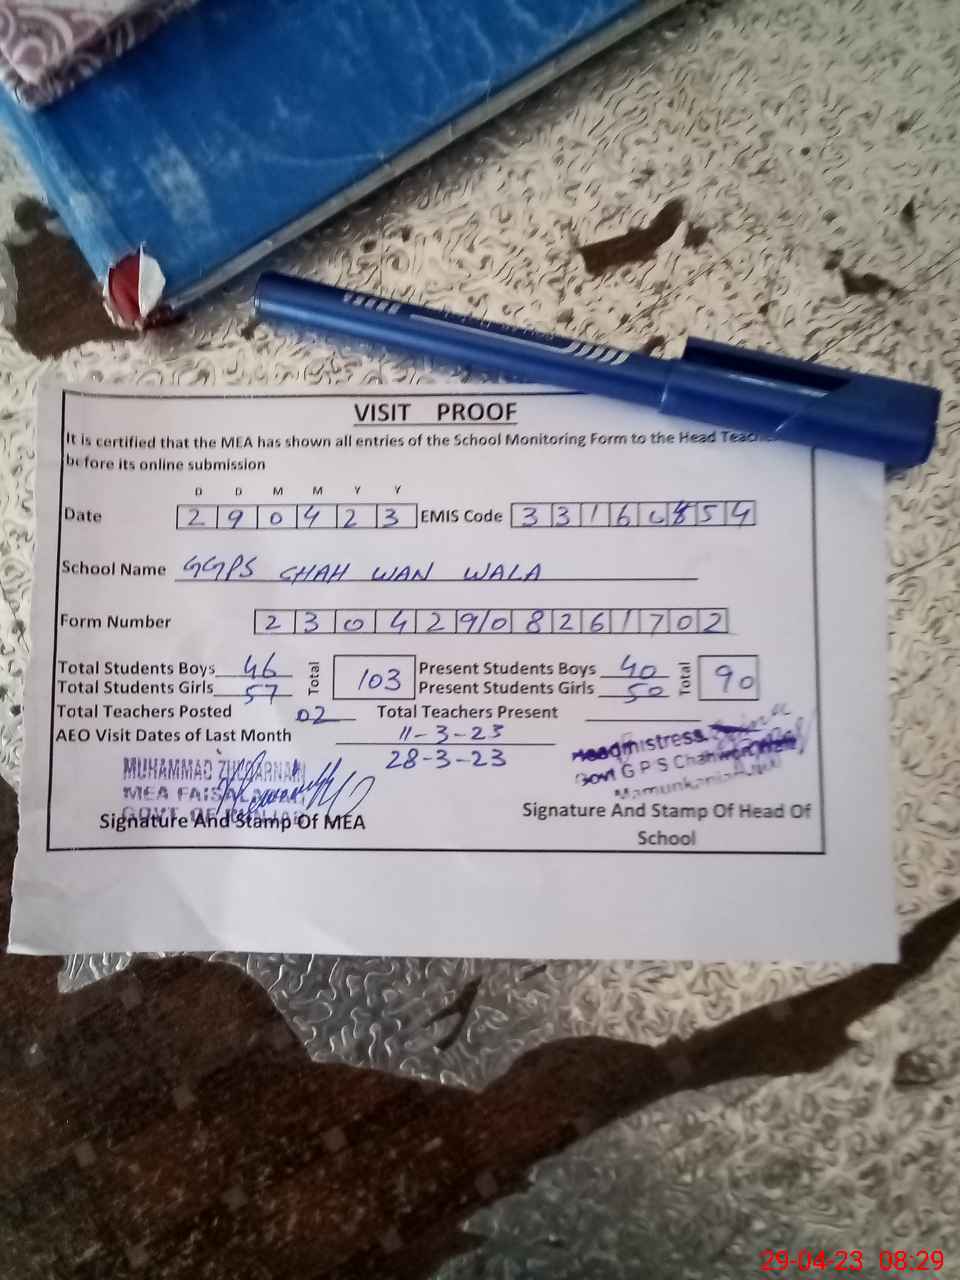 VISIT PROOF
It is certified that the MEA has shown all entries of the School Monitoring Form to the Head
before its online submission
D D M M Y Y
Date 2 9 0 4 2 3 EMIS Code 3 3 1 6 0 8 5 4
School Name GGPS CHAH WAN WALA
Form Number 2 3 0 4 2 9 0 8 2 6 1 7 0 2
Total Students Boys 46 Total 103 Present Students Boys 40 Total 90
Total Students Girls 57 Present Students Girls 50
Total Teachers Posted 02 Total Teachers Present
AEO Visit Dates of Last Month 11-3-23
28-3-23
MUHAMMAD
MEA
GOVT. OF
Signature And Stamp Of MEA
Headmistress
Govt G P S
Signature And Stamp Of Head Of
School
29-04-23 08:29